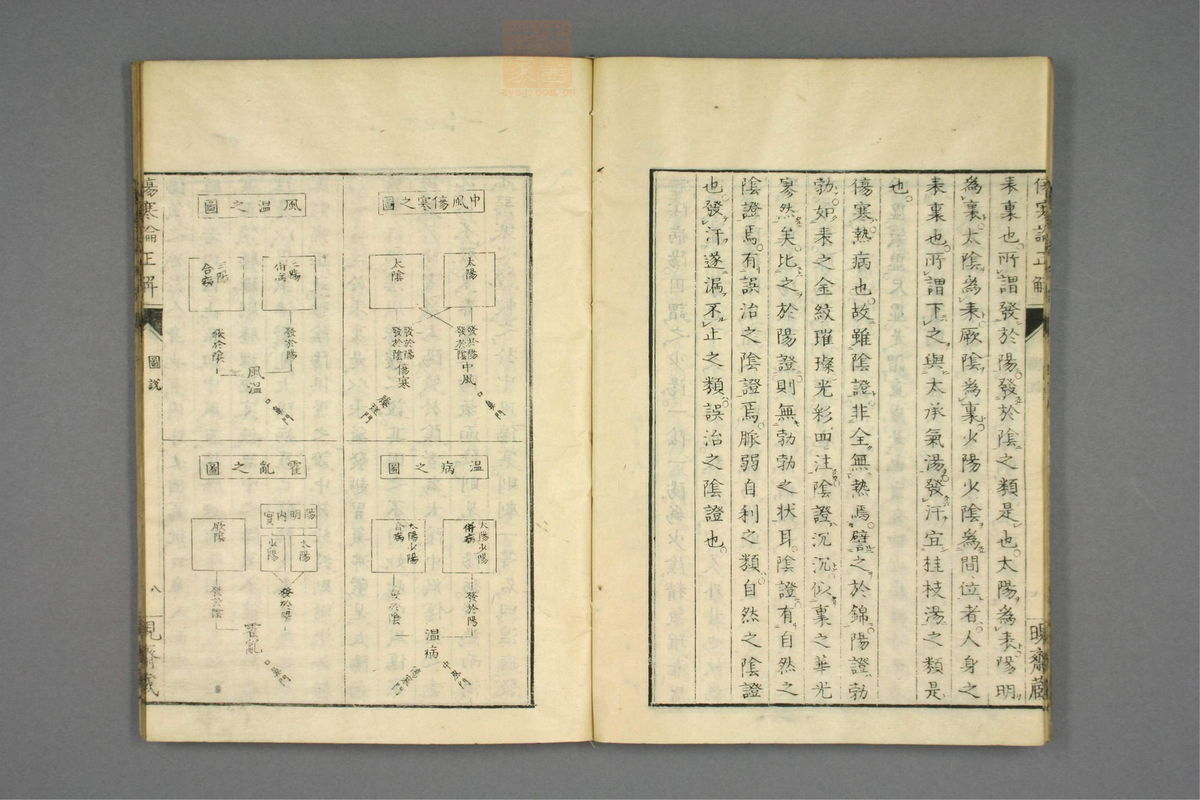 表裏也所謂發於陽發於陰之類是也太陽為表陽明
為裏太陰為表厥陰為裏少陽少陰為間位者人身之
表裏也所謂下之與大承氣湯發汗宜桂枝湯之類是
也
傷寒熱病也故雖陰證非全無熱焉譬之於錦陽證勃
勃如表之金紋璀璨光彩四注陰證沉沉似裏之華光
寥然矣比之於陽證則無勃勃之狀耳陰證有自然之
陰證焉有誤治之陰證焉脈弱自利之類自然之陰證
也發汗遂漏不止之類誤治之陰證也
中風傷寒之圖
太陽
太陰
發於陽
發於陰
中風
發於陽
發於陰
傷寒
腠理門
風溫之圖
二陽
併病
三陽
合病
發於陽
發於陰
風溫
溫病之圖
太陽少陽
併病
太陽少陽
合病
發於陽
發於陰
溫病
中風門
霍亂之圖
陽明內實
太陽
少陽
厥陰
發於陽
發於陰
霍亂
傷寒論正解
圖說
八